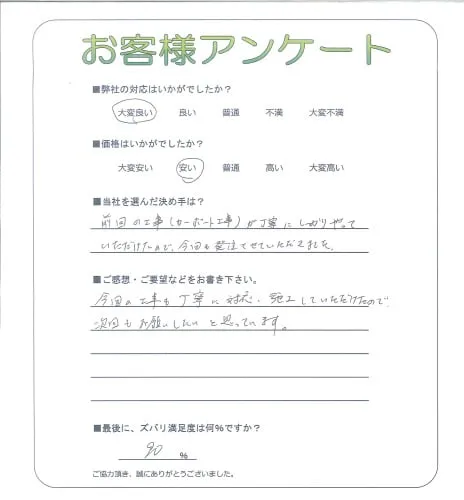 お客様アンケート
■弊社の対応はいかがでしたか?
大変良い 良い 普通 不満 大変不満
■価格はいかがでしたか?
大変安い 安い 普通 高い 大変高い
■当社を選んだ決め手は?
前回の工事(カーポート工事)が丁寧にしっかりやって
いただけたので、今回も発注させていただきました。
■ご感想・ご要望などをお書き下さい。
今回の工事も丁寧に対応、施工していただけたので
次回もお願いしたいと思っています。
■最後に、ズバリ満足度は何%ですか?
90 %
ご協力頂き、誠にありがとうございました。